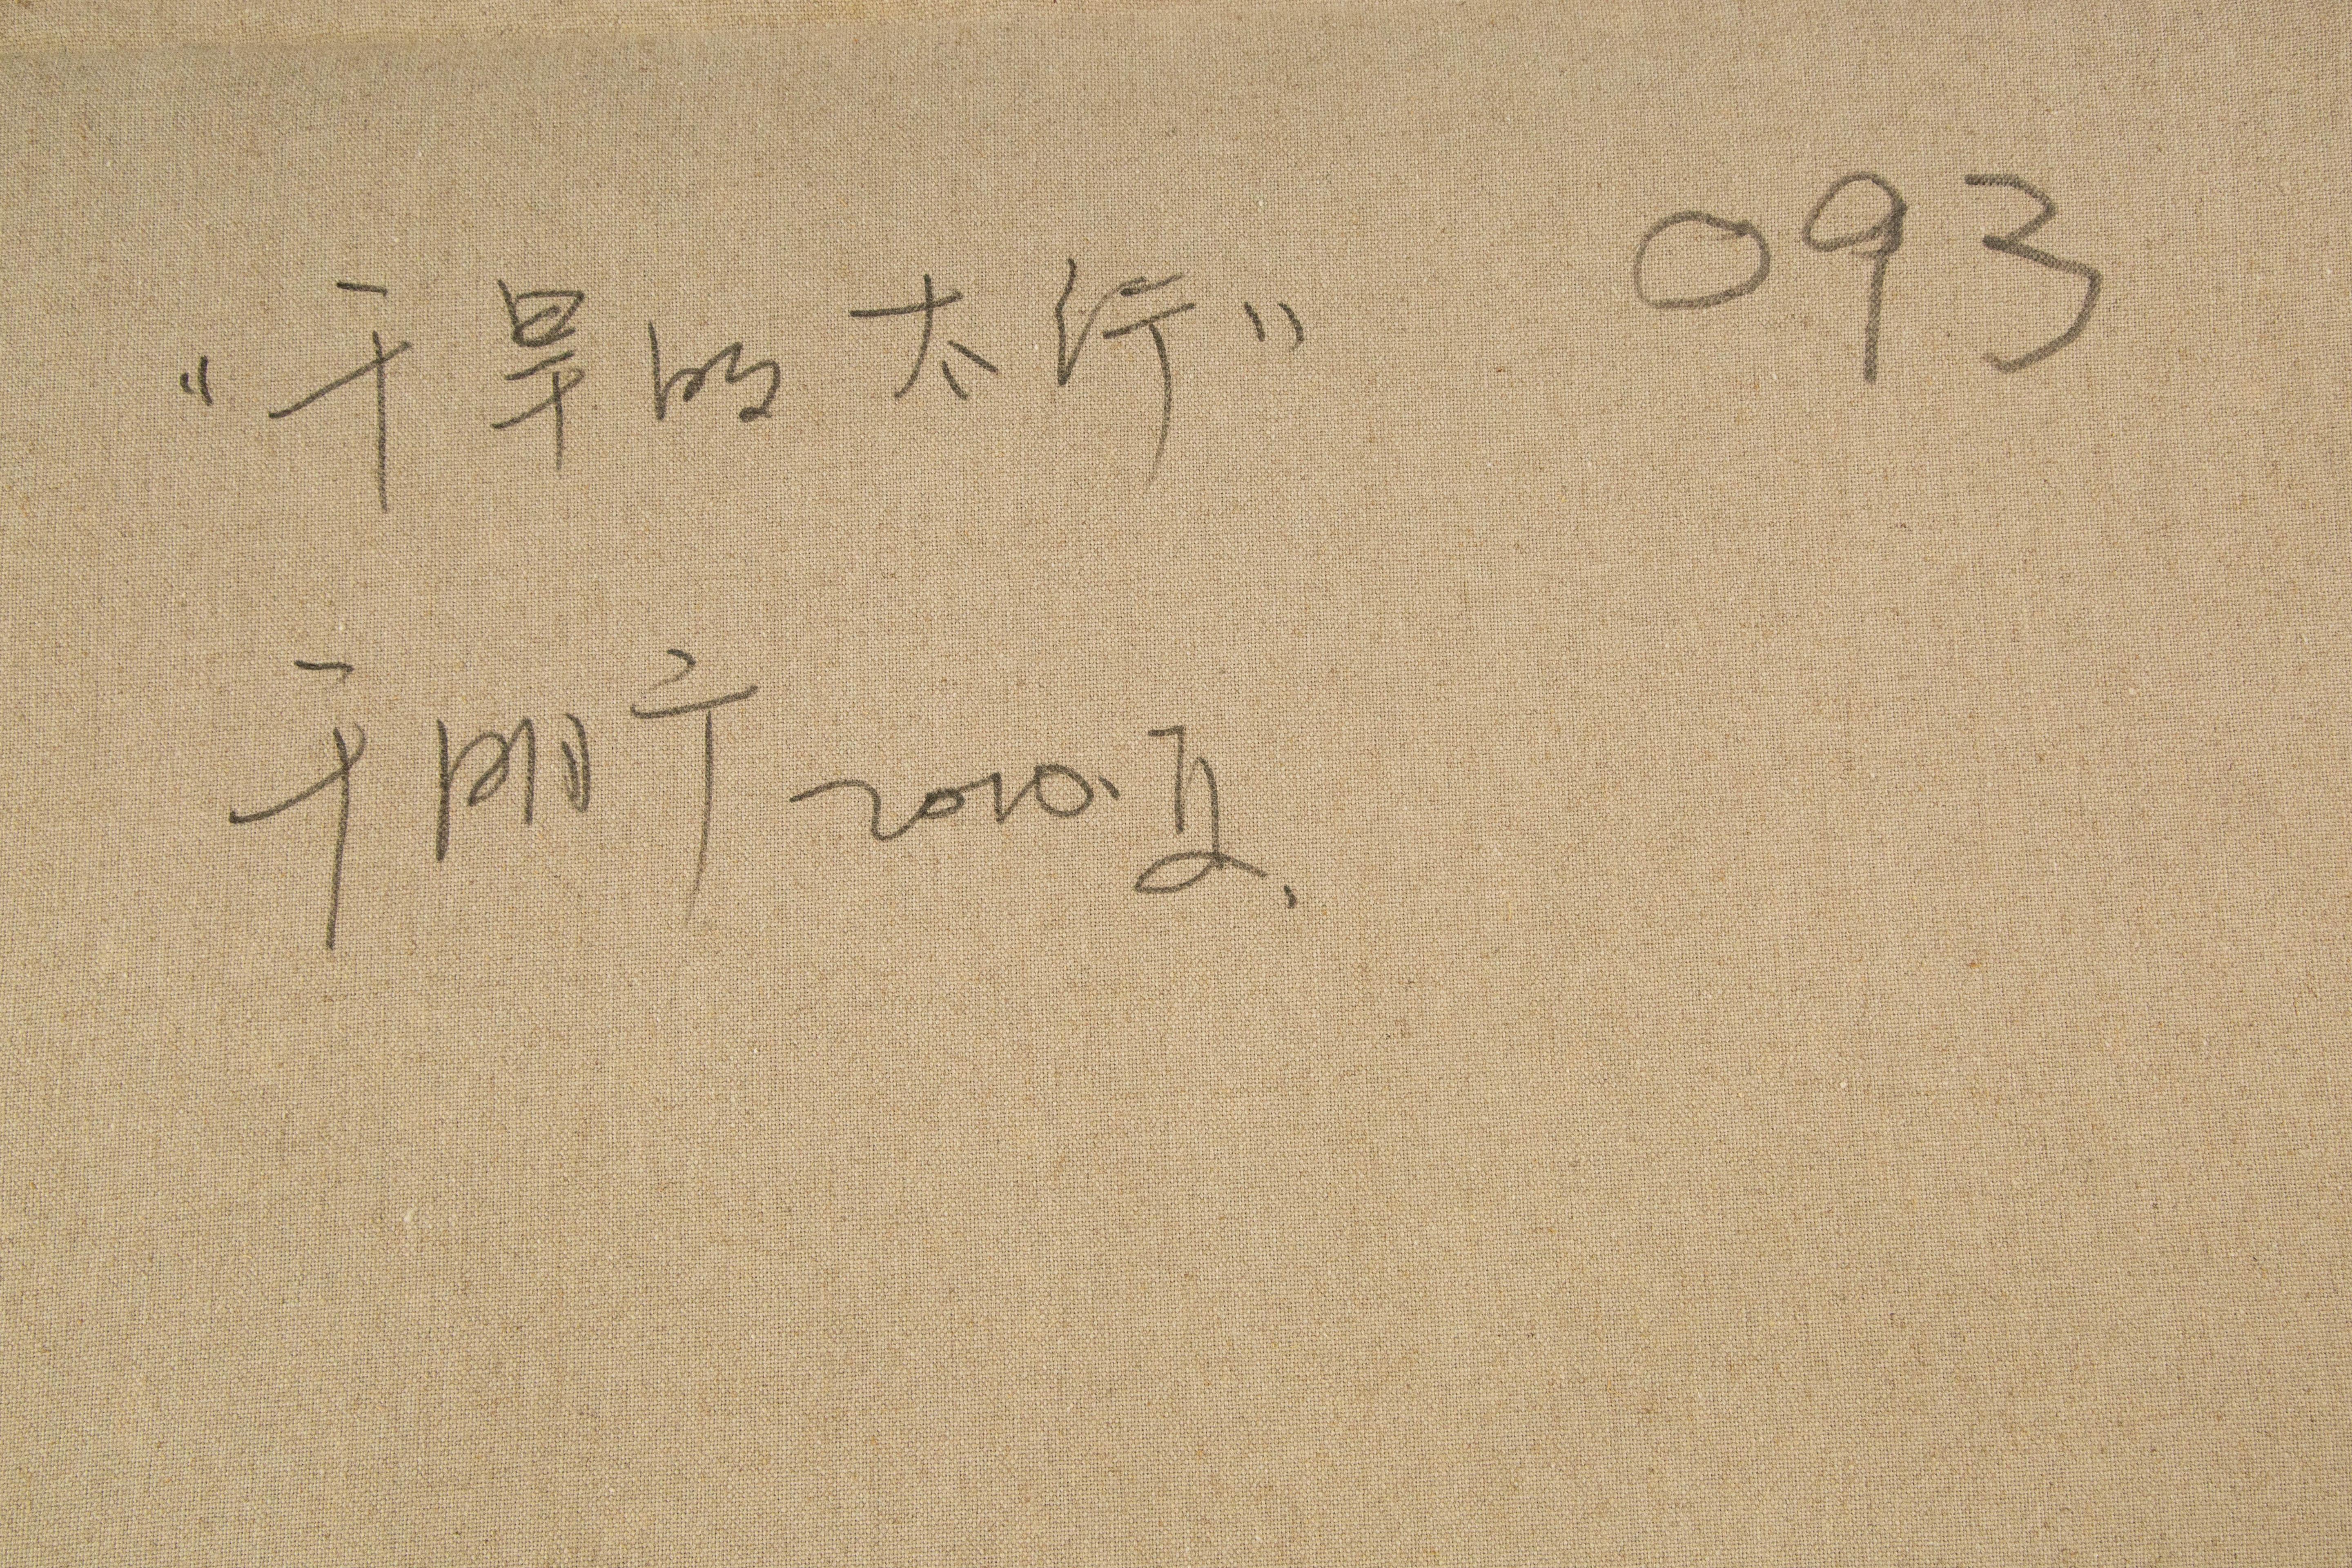 "干旱的太行" 093
于明于2010.夏.